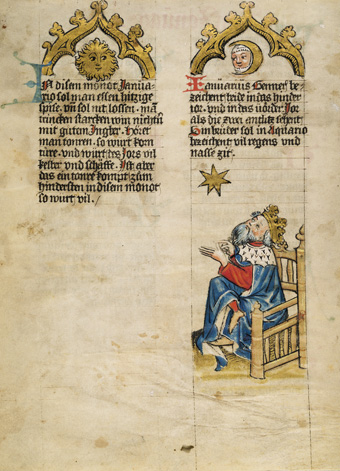 In disem monot Janua-
rio sol man essen hitzige
spise. vn̄ sol nit lossen. mā
trincken starcken win nichti
mit gůten Ingber. Höret
man tonren. so wurt korn
türe. vnd wurt des iors vil
kester vnd schaffe. Ist aber
das ein tonre kompt zům
hindersten in disem monot
so wurt vil.
Januarius Genner be-
zeichent beide in das hinder
ior. vnd in das vorder Jor
als die zwei antlitz sehent
Sin brůder sol in Aquario
bezeichent vil regens vnd
nasse zit.